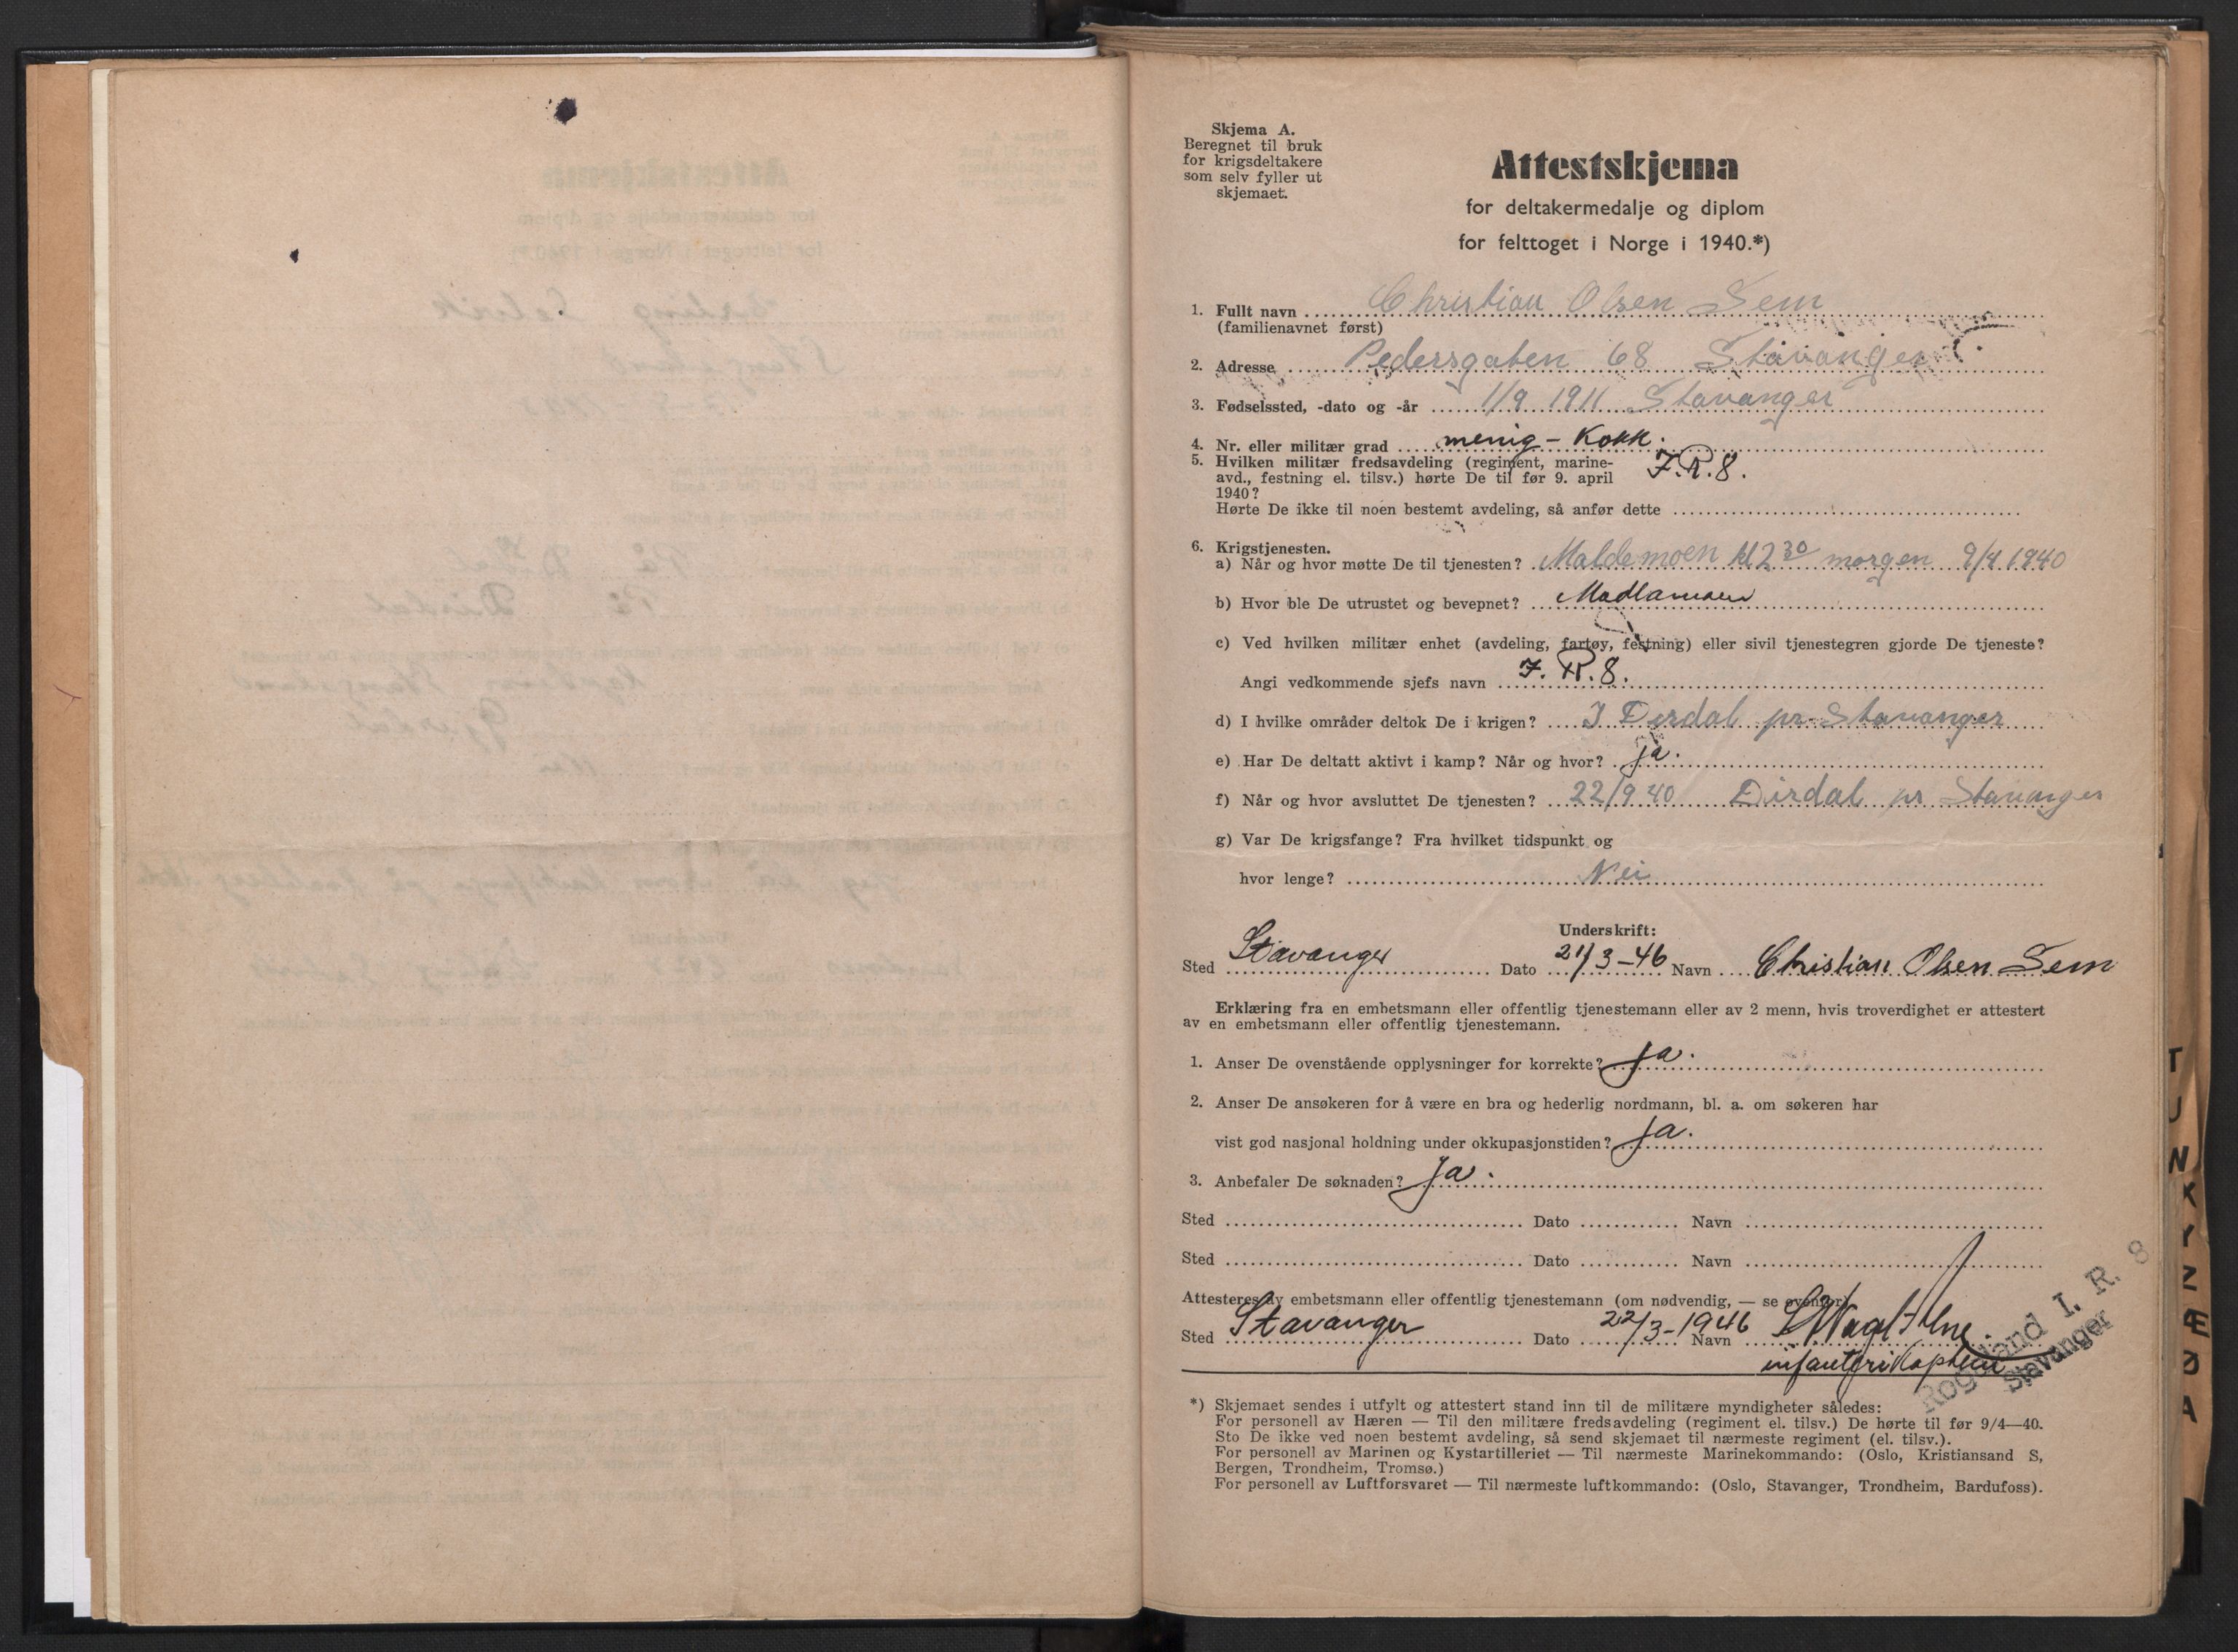 Skjema A.
Beregnet til bruk
for krigsdeltakere
som selv fyller ut
skjemaet.
Attestskjema
for deltakermedalje og diplom
for felttoget i Norge i 1940.*)
1. Fullt navn Christian Olsen Sem
(familienavnet først)
2. Adresse Pedersgaten 68 Stavanger
3. Fødselssted, -dato og -år 1/9 1911 Stavanger
4. Nr. eller militær grad menig - Kokk.
5. Hvilken militær fredsavdeling (regiment, marine-
avd., festning el. tilsv.) hørte De til før 9. april
1940? I.R.8.
Hørte De ikke til noen bestemt avdeling, så anfør dette
6. Krigstjenesten.
a) Når og hvor møtte De til tjenesten? Maldemoen kl 2 30 morgen 9/4 1940
b) Hvor ble De utrustet og bevepnet? Madlamoen
c) Ved hvilken militær enhet (avdeling, fartøy, festning) eller sivil tjenestegren gjorde De tjeneste?
Angi vedkommende sjefs navn I.R.8.
d) I hvilke områder deltok De i krigen? I Dirdal pr Stavanger
e) Har De deltatt aktivt i kamp? Når og hvor? ja.
f) Når og hvor avsluttet De tjenesten? 22/9 40 Dirdal pr Stavanger
g) Var De krigsfange? Fra hvilket tidspunkt og
hvor lenge? Nei
Underskrift:
Sted Stavanger Dato 21/3-46 Navn Christian Olsen Sem
Erklæring fra en embetsmann eller offentlig tjenestemann eller av 2 menn, hvis troverdighet er attestert
av en embetsmann eller offentlig tjenestemann.
1. Anser De ovenstående opplysninger for korrekte? ja.
2. Anser De ansøkeren for å være en bra og hederlig nordmann, bl. a. om søkeren har
vist god nasjonal holdning under okkupasjonstiden? ja.
3. Anbefaler De søknaden? Ja.
Sted Dato Navn
Sted Dato Navn
Attesteres av embetsmann eller offentlig tjenestemann (om nødvendig, — se ovenfor)
Sted Stavanger Dato 22/3-1946 Navn
infanterikaptein
Rogaland I. R. 8
Stavanger
*) Skjemaet sendes i utfylt og attestert stand inn til de militære myndigheter således:
For personell av Hæren — Til den militære fredsavdeling (regiment el. tilsv.) De hørte til før 9/4—40.
Sto De ikke ved noen bestemt avdeling, så send skjemaet til nærmeste regiment (el. tilsv.).
For personell av Marinen og Kystartilleriet — Til nærmeste Marinekommando: (Oslo, Kristiansand S,
Bergen, Trondheim, Tromsø.)
For personell av Luftforsvaret — Til nærmeste luftkommando: (Oslo, Stavanger, Trondheim, Bardufoss).
T
U
N
X
Y
Z
Æ
Ø
A